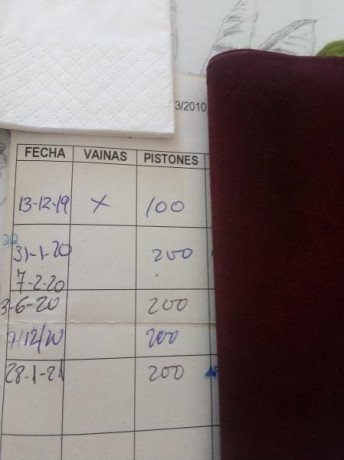 3/2010
FECHA VAINAS PISTONES
13-12-19 X 100
31-1-20 200
7-2-20
3-6-20 200
9/12/20 200
28-1-21 200